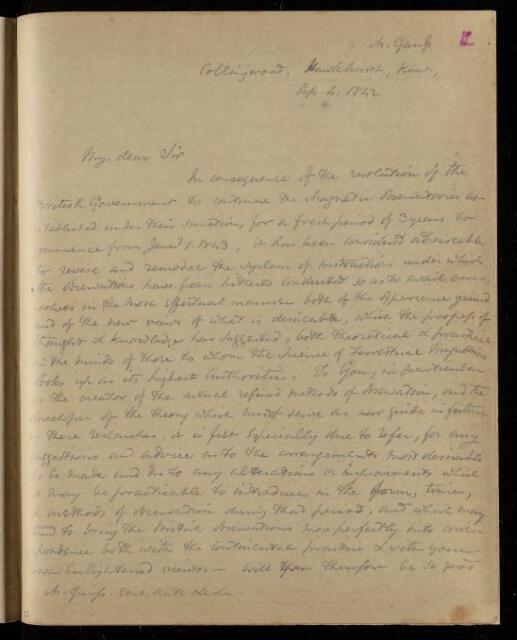 M. Gauss
Collingwood, Hawkhurst, Kent,
Sep. 4. 1842
My dear Sir
In consequence of the resolution of the
British Government to continue the Magnetic Observatories es-
tablished under their sanction, for a fresh period of 3 years to
commence from Jany 1. 1843, it has been considered adviseable
to revise and remodel the system of instructions under which
the observations have been hitherto conducted so as to avail our-
selves in the most effectual manner both of the experience gained
and of the new views of what is desirable, which the progress of
thought & knowledge has suggested, both theoretical & practical
in the minds of those to whom the Science of Terrestrial Magnetism
looks up as its highest Authorities. To You, in particular
as the creator of the actual refined methods of observation, and the
developer of the theory which must serve as our guide in future
in these researches, it is felt specially due to refer, for any
suggestions and advice as to the arrangements most desirable
to be made and as to any alterations or improvements which
it may be practicable to introduce in the form, times,
& methods of observation during that period, and which may
tend to bring the British observations more perfectly into corres-
pondence both with the Continental practice & with your
own Enlightened views. — Will you therefore be so good
M. Gauss.